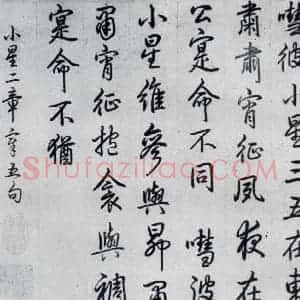 嘒彼小星三五在東
肅肅宵征夙夜在
公寔命不同嘒彼
小星維參與昴肅
肅宵征抱衾與裯
寔命不猶
小星二章章五句
Shufaziliao.com